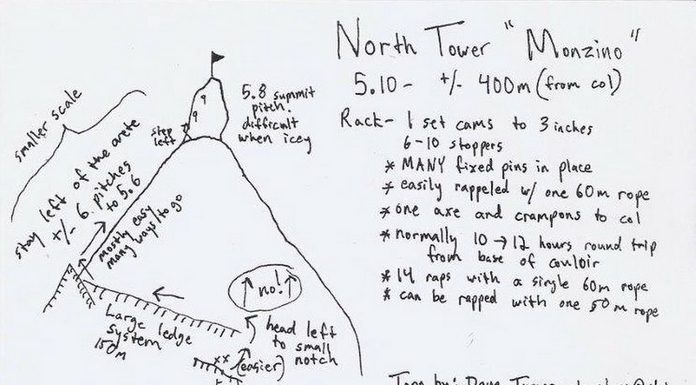 North Tower "Monzino"
5.10- +/- 400m (from col)
Rack- 1 set cams to 3 inches
6-10 stoppers
* MANY fixed pins in place
* easily rappeled w/ one 60m rope
* one axe and crampons to col
* normally 10 → 12 hours round trip
from base of couloir
* 14 raps with a single 60m rope
* can be rapped with one 50m rope
smaller scale
stay left of the arete
+/- 6 pitches
to 5.6
mostly easy
many ways to go
step
left
5.8 summit
pitch.
difficult
when icey
no!
Large ledge
system
150m
head left
to small
notch
xx (easier)
Topo by: